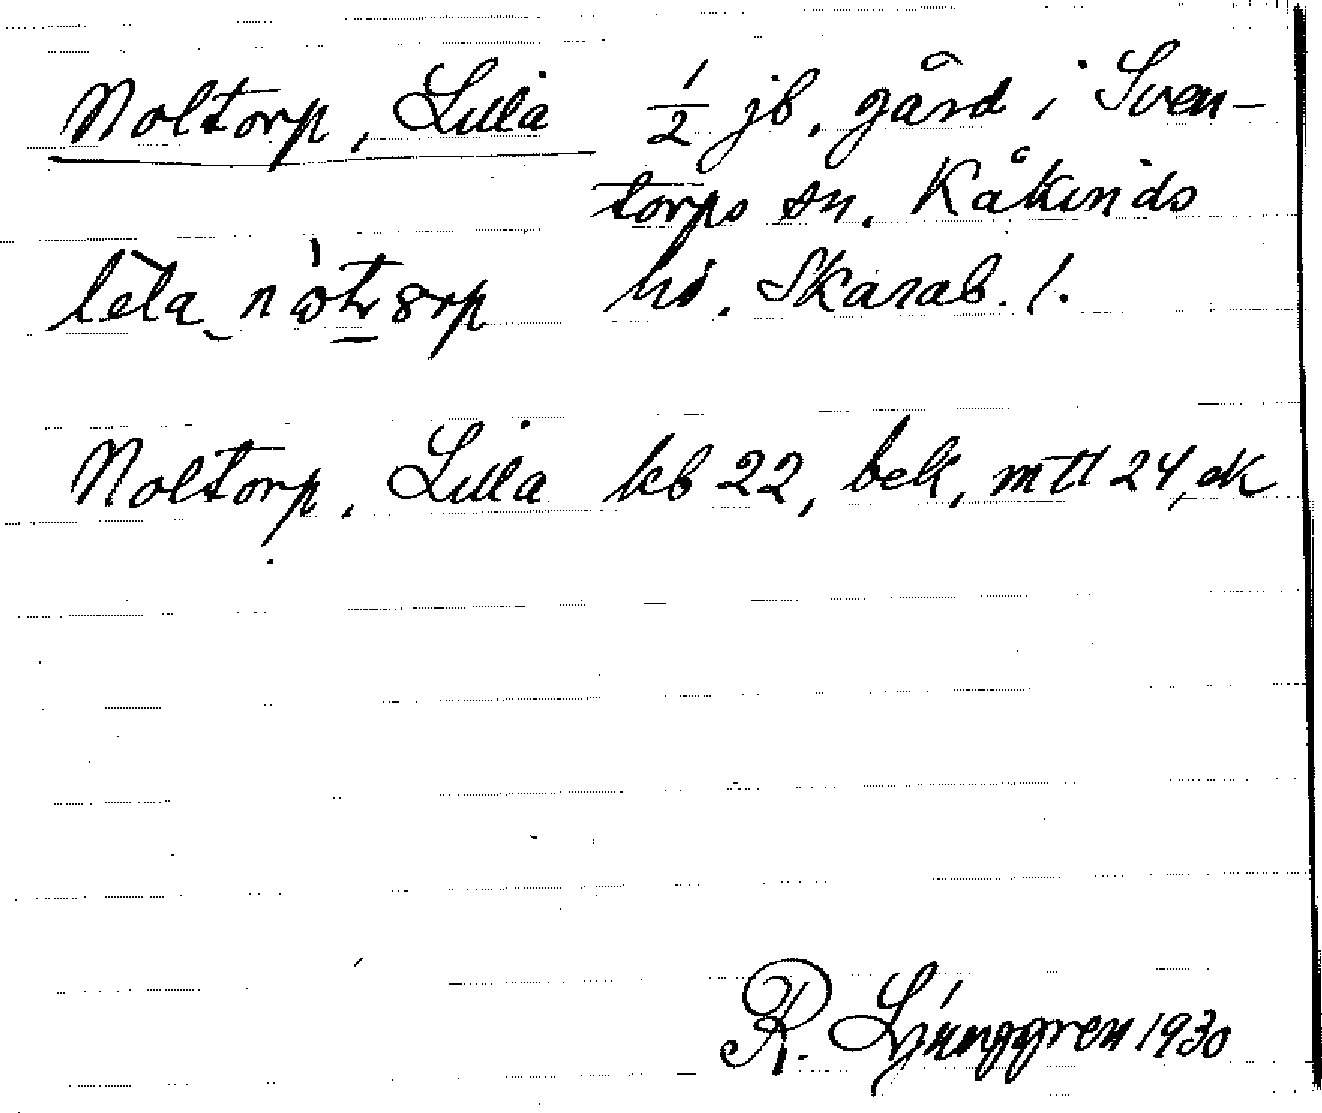 Noltorp, Lilla 1/2 jb, gård i Sven-
torps sn. Kåkinds
hd. Skarab. l.
Noltorp, Lilla kb 22, bek, mtl 24, ek
R. Ljunggren 1930